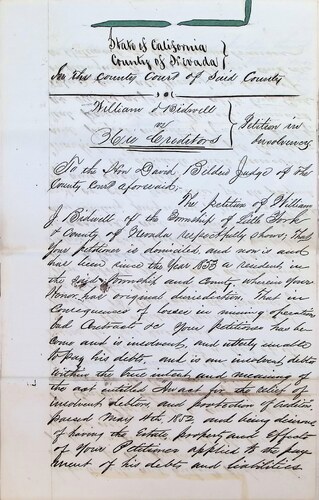 State of California
County of Nevada
In the County Court of Said County
William J Bidwell
vs
His Creditors
Petition in
Insolvency
To the Hon David Belden Judge of the
County Court aforesaid;
The petition of William
J. Bidwell of the Township of Little York
& County of Nevada respectfully shows; That
Your petitioner is domiciled and now is and
has been since the Year 1853 a resident in
the said Township and County, wherein Your
Honor has original jurisdiction. That in
Consequence of losses in mining operations
bad Contracts &c Your Petitioner has be
come and is insolvent, and utterly unable
to pay his debts, and is an insolvent debtor
within the true intent and meaning of
the act entitled An act for the relief of
insolvent debtors and protection of creditors,
passed May 4th, 1852, and being desirous
of having the Estate, property and Effects
of Your Petitioner applied to the pay
ment of his debts and liabilities